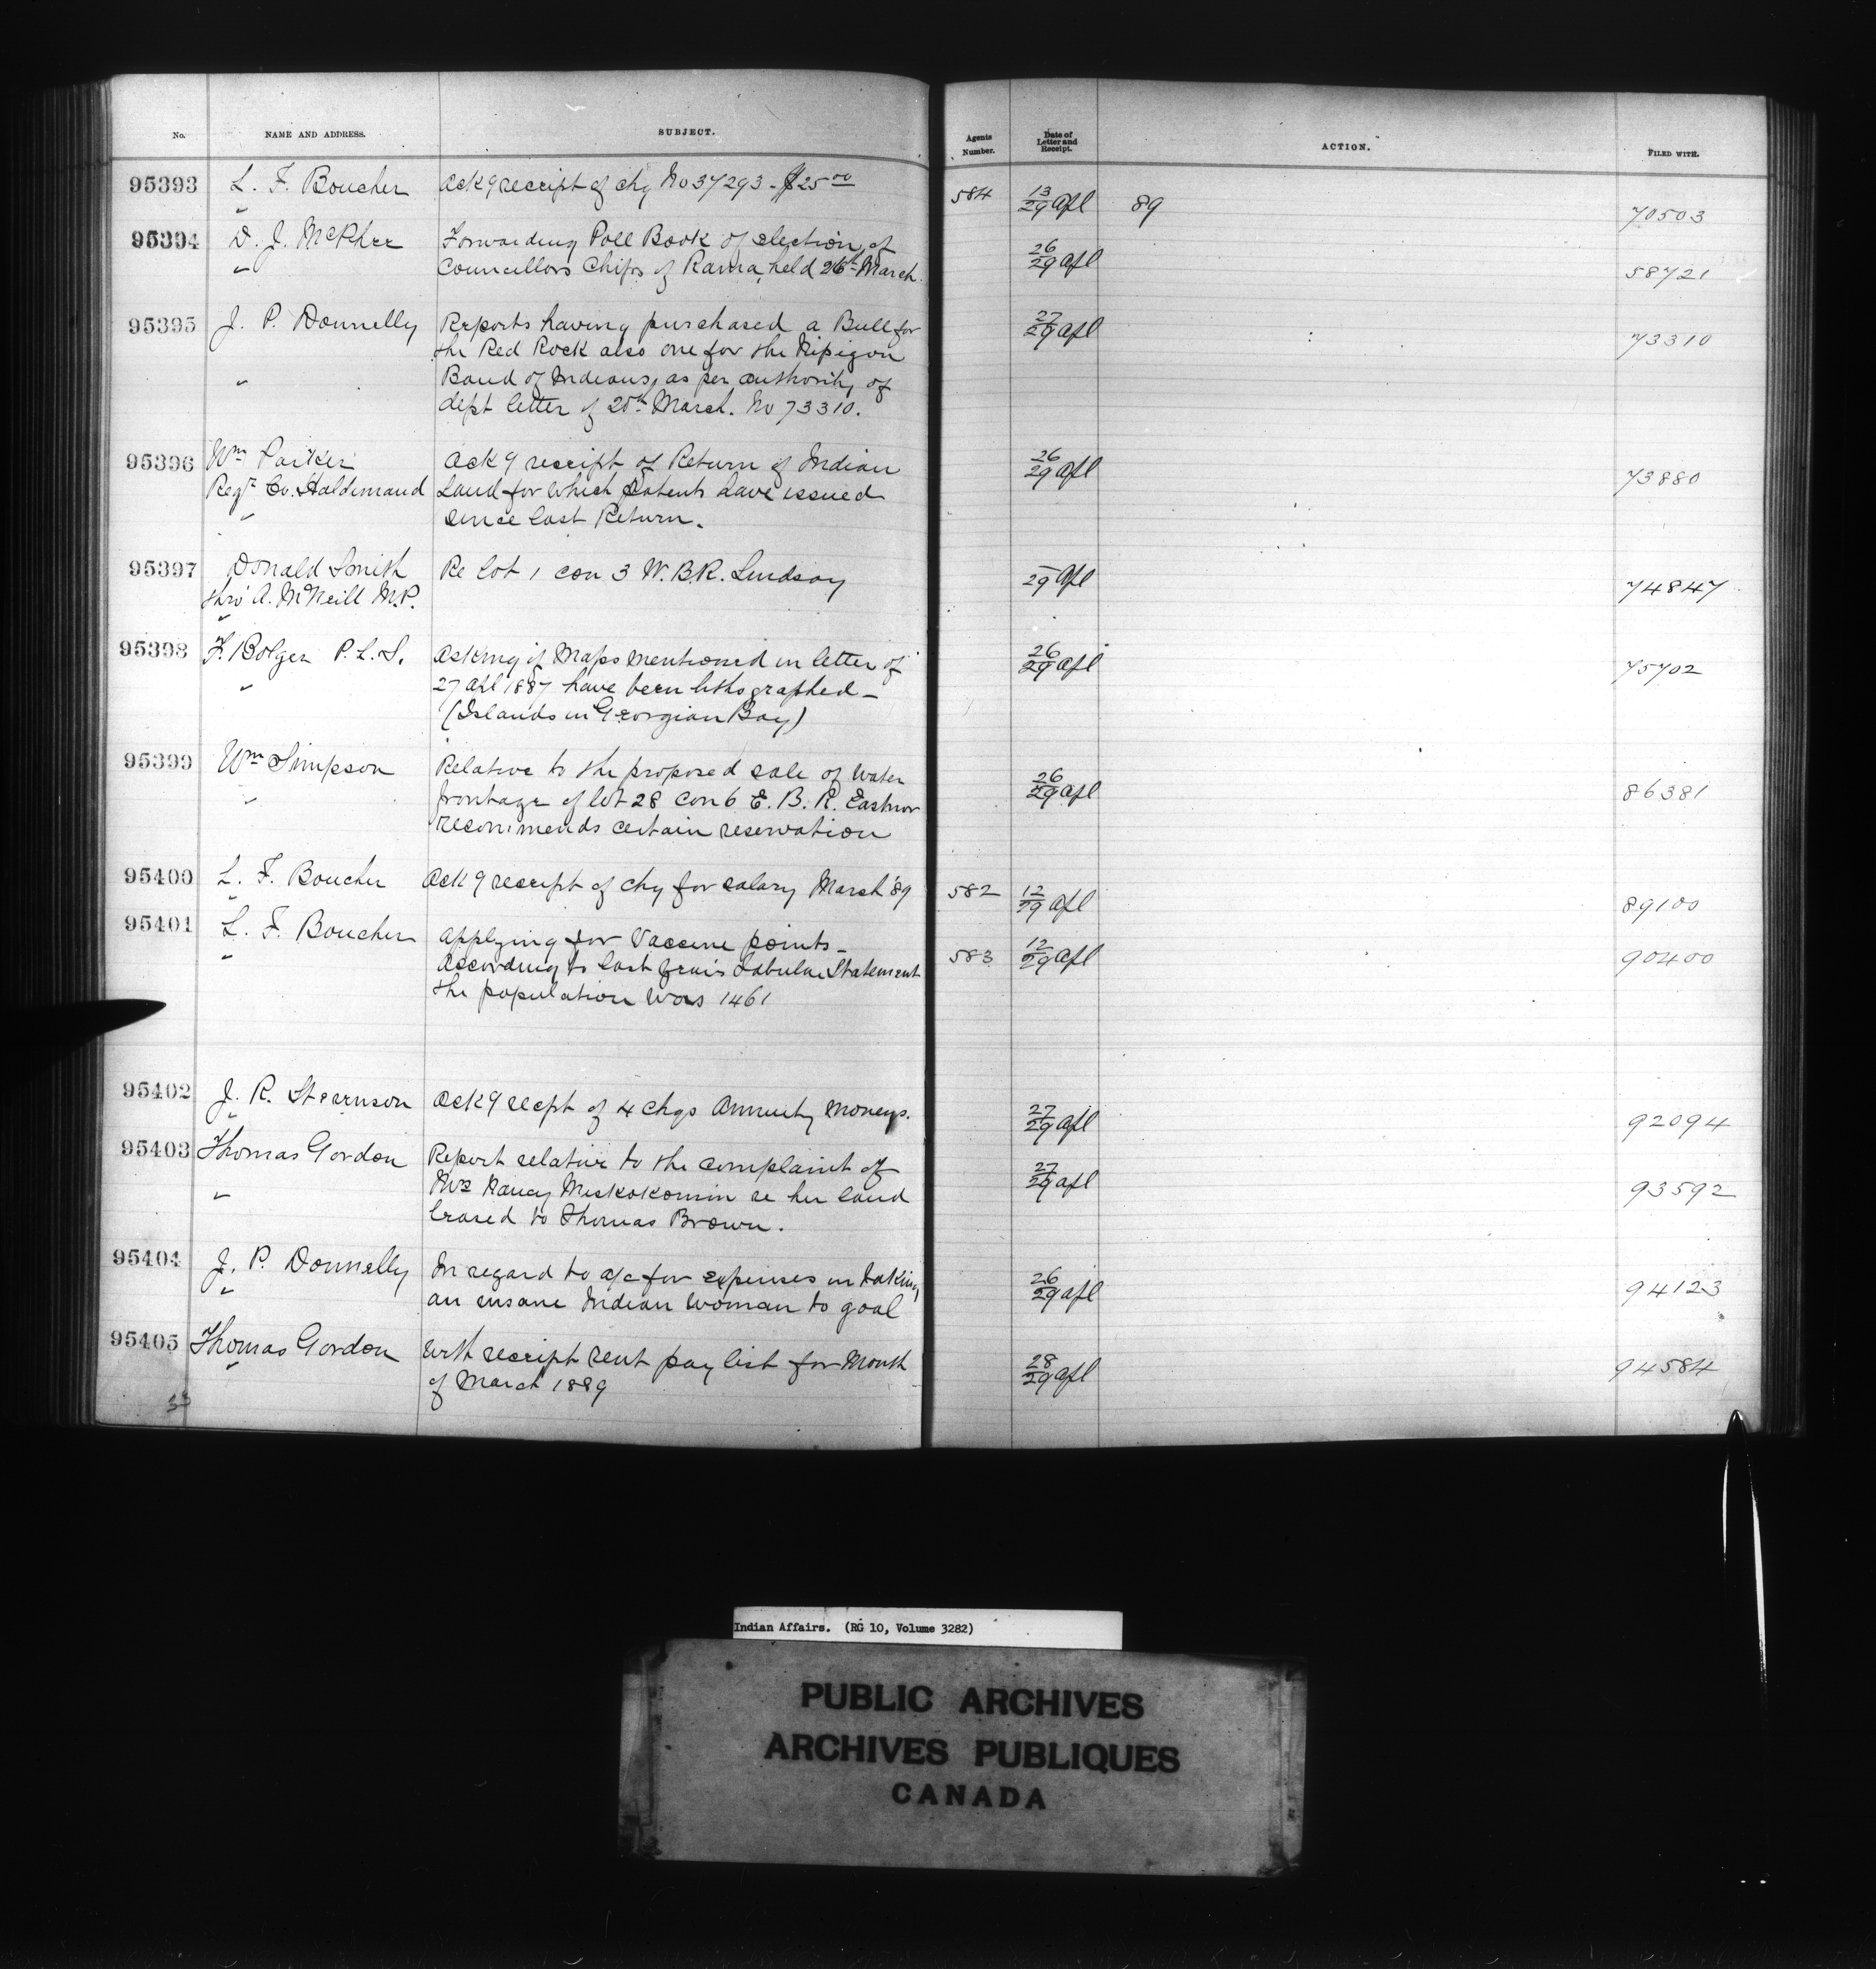 No. NAME AND ADDRESS. SUBJECT. Agents Number. Date of Letter and Receipt. ACTION. FILED WITH.
95393 L. F. Boucher Ackg receipt of chq No 37293 - $25 00 584 13/29 Apl 89 70503
95394 D. J. McPhee Forwarding Poll Book of election of 26/29 Apl 58721
" Councillors Chips of Rama, held 26th March
95395 J. P. Donnelly Reports having purchased a Bull for 27/29 Apl 73310
the Red Rock also one for the Nipigon
" Band of Indians, as per authority of
dept letter of 25th March. No 73310.
95396 Wm Parker Ackg receipt of Return of Indian 26/29 Apl 73880
Regr Co. Haldimand Land for which Patents have issued
" since last Return.
95397 Donald Smith Re Lot 1 con 3 W. B. R. Lindsay -/29 Apl 74847
thro' A. McNeill M.P.
"
95398 F. Bolger P. L. S. Asking if Maps mentioned in letter of 26/29 Apl 75702
" 27 Apl 1887 have been lithographed -
(Islands in Georgian Bay)
95399 Wm Simpson Relative to the proposed sale of water 26/29 Apl 86381
" frontage of lot 28 con 6 E. B. R. Eastnor
recommends certain reservation
95400 L. F. Boucher Ackg receipt of chq for salary March '89 582 12/29 Apl 89100
"
95401 L. F. Boucher Applying for Vaccine points - 583 12/29 Apl 90400
" According to last year's Tabular Statement
the population was 1461
95402 J. R. Stearnson Ackg recpt of 4 chqs Annuity moneys. 27/29 Apl 92094
"
95403 Thomas Gordon Report relative to the complaint of 27/29 Apl 93592
" Mrs Nancy Miskokomin re her land
leased to Thomas Brown.
95404 J. P. Donnelly In regard to a/c for expenses in taking 26/29 Apl 94123
" an insane Indian woman to goal
95405 Thomas Gordon With receipt rent pay list for Month 28/29 Apl 94584
" of March 1889
Indian Affairs. (RG 10, Volume 3282)
PUBLIC ARCHIVES
ARCHIVES PUBLIQUES
CANADA